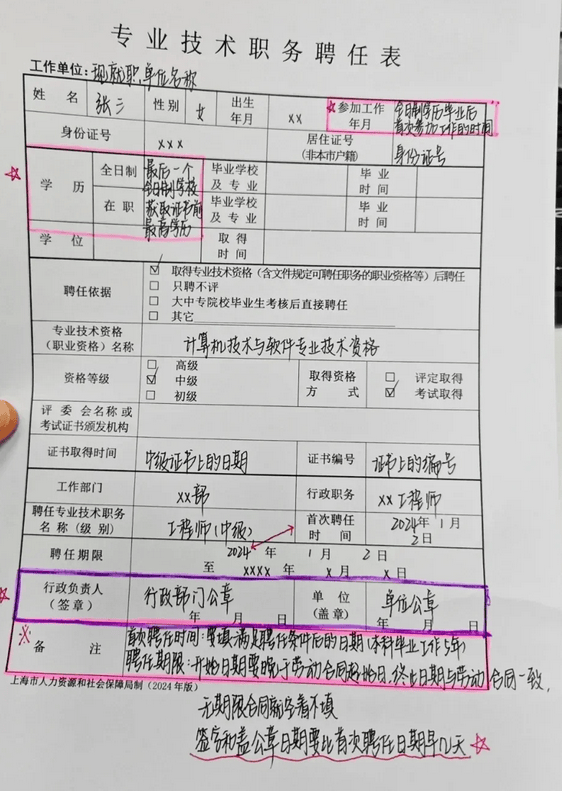 专业技术职务聘任表
工作单位: 现就职单位名称
姓 名 张三 性别 女 出生年月 xx ☆参加工作年月 全日制学历毕业后首次参加工作的时间
身份证号 xxx 居住证号(非本市户籍) 身份证号
☆ 学 历 全日制 最后一个全日制学校 毕业学校及专业 毕业时间
在职 获取证书前最高学历 毕业学校及专业 毕业时间
学 位 取得时间
聘任依据 ☑ 取得专业技术资格(含文件规定可聘任职务的职业资格等)后聘任
□ 只聘不评
□ 大中专院校毕业生考核后直接聘任
□ 其它
专业技术资格(职业资格)名称 计算机技术与软件专业技术资格
资格等级 □ 高级 ☑ 中级 □ 初级 取得资格方式 □ 评定取得 ☑ 考试取得
评委会名称或考试证书颁发机构
证书取得时间 中级证书上的日期 证书编号 证书上的编号
工作部门 xx部 行政职务 xx工程师
聘任专业技术职务名称(级别) 工程师(中级) 首次聘任时间 2024年1月2日
聘任期限 2024年1月2日
至 xxxx年x月x日
☆ 行政负责人(签章) 行政部门公章 年 月 日 单位(盖章) 单位公章 年 月 日
※ 备 注 首次聘任时间:要填满足聘任条件后的日期(本科毕业工作5年)
聘任期限:开始日期要晚于劳动合同起始日,终止日期与劳动合同一致,
上海市人力资源和社会保障局制(2024年版)
无期限合同就空着不填
签字和盖公章日期要比首次聘任日期早几天☆